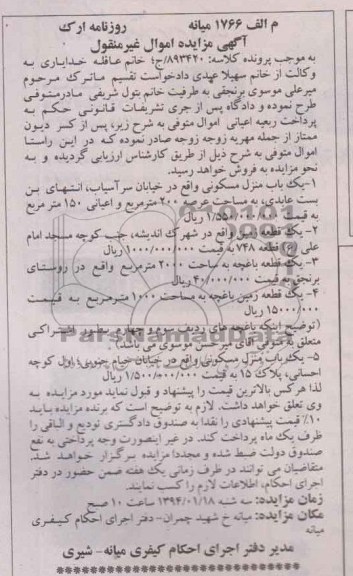 م الف ۱۷۶۶ میانه روزنامه ارک
آگهی مزایده اموال غیرمنقول
به موجب پرونده کلاسه: ۸۹۳۴۲۰/ج؛ خانم عاقله خدایاری به
وکالت از خانم سهیلا عبدی دادخواست تقسیم ماترک مرحوم
میرعلی موسوی برنجقی به طرفیت خانم بتول شریفی مادرمتوفی
طرح نموده و دادگاه پس از جری تشریفات قانونی حکم به
پرداخت ربعیه اعیانی اموال متوفی به شرح زیر، پس از کسر دیون
ممتاز از جمله مهریه زوجه زوجه صادر نموده که در این راستا
اموال متوفی به شرح ذیل از طریق کارشناس ارزیابی گردیده و به
نحو مزایده به فروش خواهد رسید.
۱-یک باب منزل مسکونی واقع در خیابان سرآسیاب، انتهای بن
بست عابدی، به مساحت عرصه ۲۰۰مترمربع و اعیانی ۱۵۰ متر مربع
به قیمت ۱/۵۵۰/۰۰۰/۰۰۰ ریال
۲-یک قطعه زمین واقع در شهرک اندیشه، جنب کوچه مسجد امام
علی (ع) قطعه ۷۴۸ به قیمت ۱۰۰۰/۰۰۰/۰۰۰ ریال
۳-یک قطعه باغچه به مساحت ۲۰۰۰ مترمربع واقع در روستای
برنجق به قیمت ۴۰/۰۰۰/۰۰۰ ریال
۴- یک قطعه زمین باغچه به مساحت ۱۰۰۰ مترمربع به قیمت
۱۵۰۰۰/۰۰۰ ریال
(توضیح اینکه باغچه های ردیف سوم و چهارم بطور اشتراکی
متعلق به متوفی آقای میرحسن موسوی می باشد).
۵- یک باب منزل مسکونی واقع در خیابان خیام جنوبی؛ اول کوچه
احسانی، پلاک ۱۵ به قیمت ۱/۵۰۰/۰۰۰/۰۰۰ ریال
لذا هرکس بالاترین قیمت را پیشنهاد و قبول نماید مورد مزایده به
وی تعلق خواهد داشت. لازم به توضیح است که برنده مزایده باید
۱۰٪ قیمت پیشنهادی را نقدا به صندوق دادگستری تودیع و الباقی را
ظرف یک ماه پرداخت کند. در غیر اینصورت وجه پرداختی به نفع
صندوق دولت ضبط شده و مجددا مزایده برگزار خواهد شد.
متقاضیان می توانند در ظرف زمانی یک هفته ضمن حضور در دفتر
اجرای احکام، اطلاعات لازم را کسب نمایند.
زمان مزایده: سه شنبه ۱۳۹۴/۰۱/۱۸ ساعت ۱۰ صبح
مکان مزایده: میانه خ شهید چمران- دفتر اجرای احکام کیفری
میانه
مدیر دفتر اجرای احکام کیفری میانه- شیری